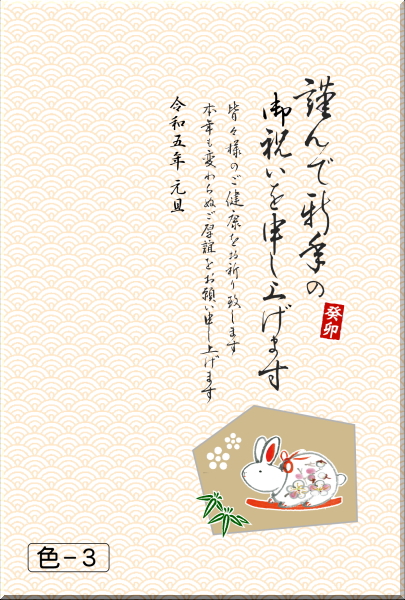 謹んで新年の
御祝いを申し上げます
癸卯
皆々様のご健康をお祈り致します
本年も変わらぬご厚誼をお願い申し上げます
令和五年 元旦
色−3